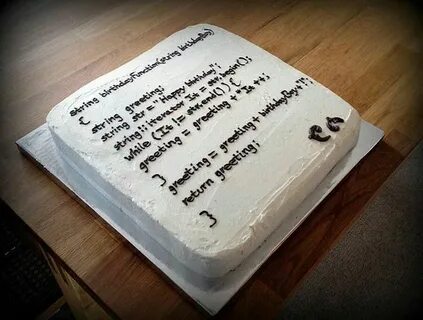 string birthdayFunction(string birthdayBoy)
{
string greeting;
string str = "Happy birthday";
string::iterator It = str.begin();
while (It != str.end()) {
greeting = greeting + *It++;
}
greeting = greeting + birthdayBoy + "!";
return greeting;
}